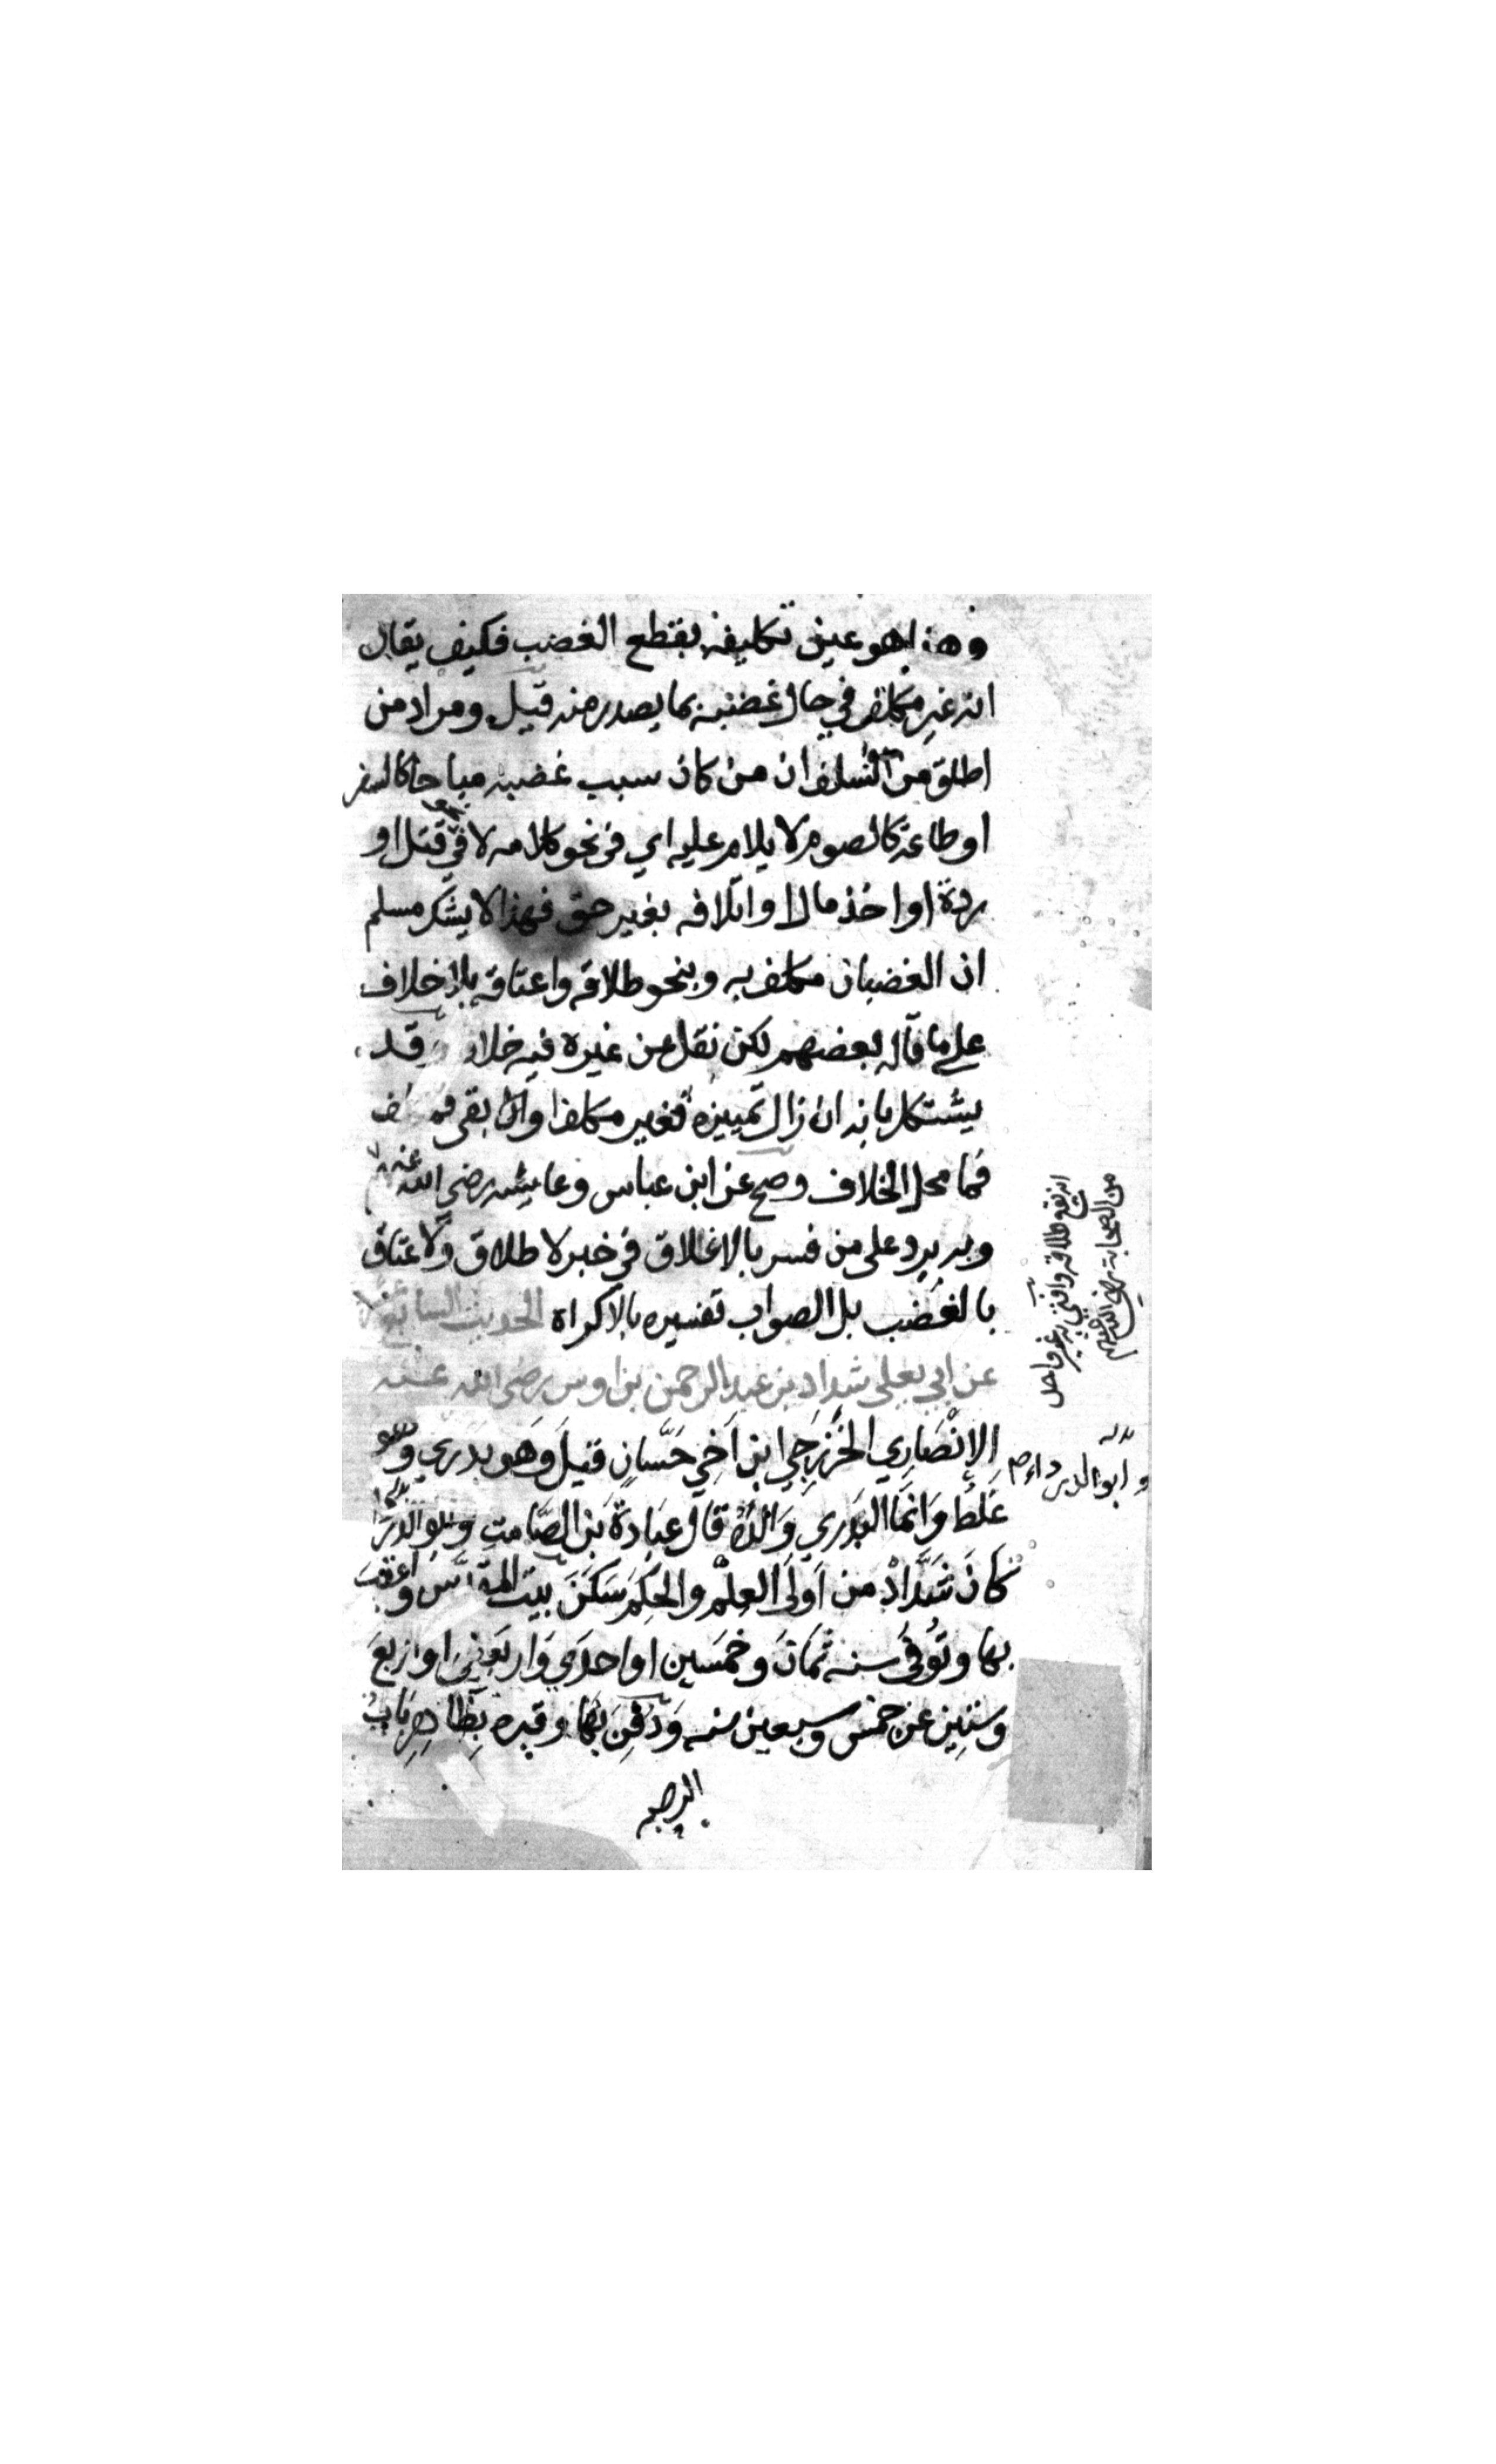 وهذا هو عين تكليفه بقطع الغضب فكيف يقال
انه غير مكلف في حال غضبه بما يصدر منه قيل ومراد من
اطلق من السلف ان من كان سبب غضبه مباحا كالسفر
او طاعة كالصوم لا يلام عليه اي في نحو كلامه لا في نحو قتل او
ردة او اخذ مال او اتلافه بغير حق فهذا لا يشك مسلم
ان الغضبان مكلف به وبنحو طلاقه واعتاقه بلا خلاف
على ما قاله بعضهم لكن نقل عن غيره فيه خلاف وقد
يشتكل بانه ان زال تمييزه فغير مكلف او ان بقي
فما محل الخلاف وصح عن ابن عباس وعايشه رضي الله عنهم
انه يقع طلاقه وافتى به غير واحد
من الصحابة رضي الله عنهم
وبه يرد على من فسر بالاغلاق في خبر لا طلاق ولا عتاق
بالغضب بل الصواب تفسيره بالاكراه الحديث السابع
عن ابي يعلى شداد بن عبد الرحمن بن اوس رضي الله عنه
الانْصَاري الخَزرَجي ابن اَخِي حَسَّان قيلَ وَهو بدري وهو
غَلَطُ وَانمَا البَدري وَالدُهُ قال عبَادة بَن الصَّامت وابو الدردا
وابو الدرداء
كانَ شَدَّادْ من اَولى العِلْم والحكَم سَكَنَ بيت المقدس واعقبَ
بها وتُوفيَ سنه ثمَانَ وخمَسين او احدَي وَاربَعينَ او اربَعَ
وسَتين عن خمس وسبعين سنه وَدفنَ بهَا وقبره بِظاهِر بَابُ
الرحمه